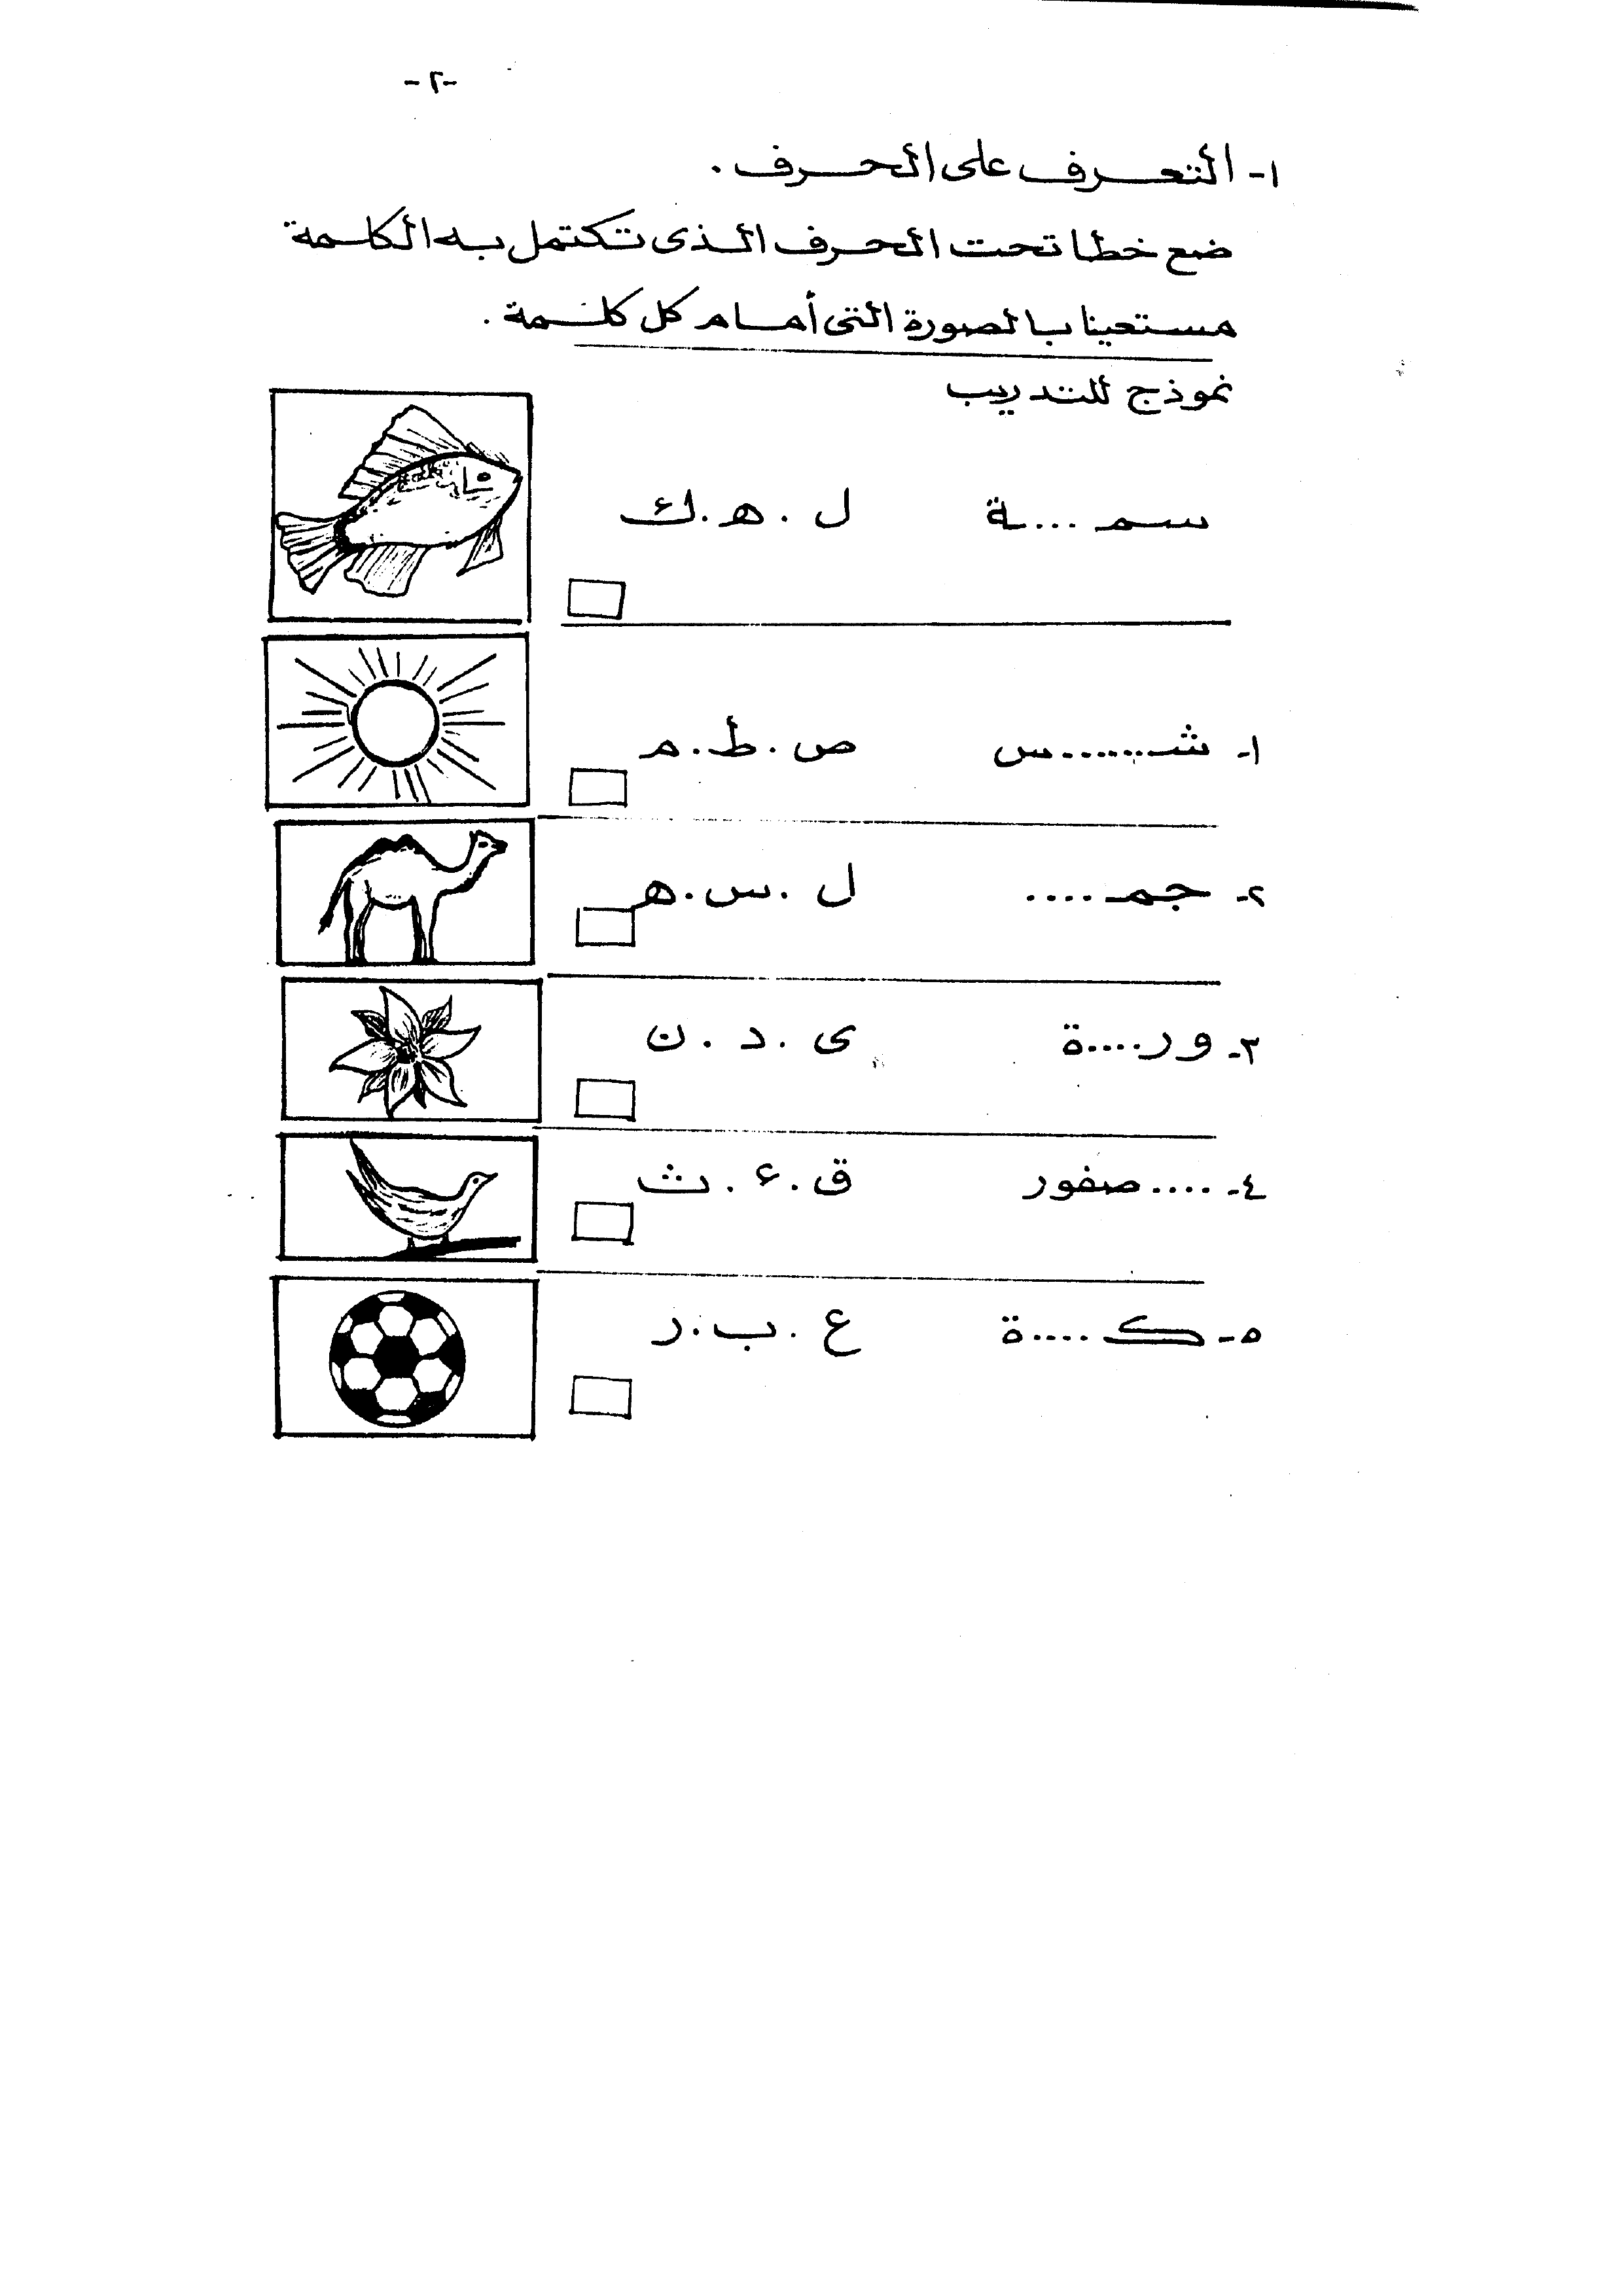 -٢-
١- التعرف على الحرف .
ضع خطا تحت الحرف الذى تكتمل به الكلمة
مستعينا بالصورة التى أمام كل كلمة .
نموذج للتدريب
سمـ ....ـة ل . هـ . ك
١- شـ.......س ص . ط . م
٢- جمـ .... ل . س . هـ
٣- ور....ة ى . د . ن
٤- ....صفور ق . ع . ث
٥- كـ ....ة ع . ب . ر